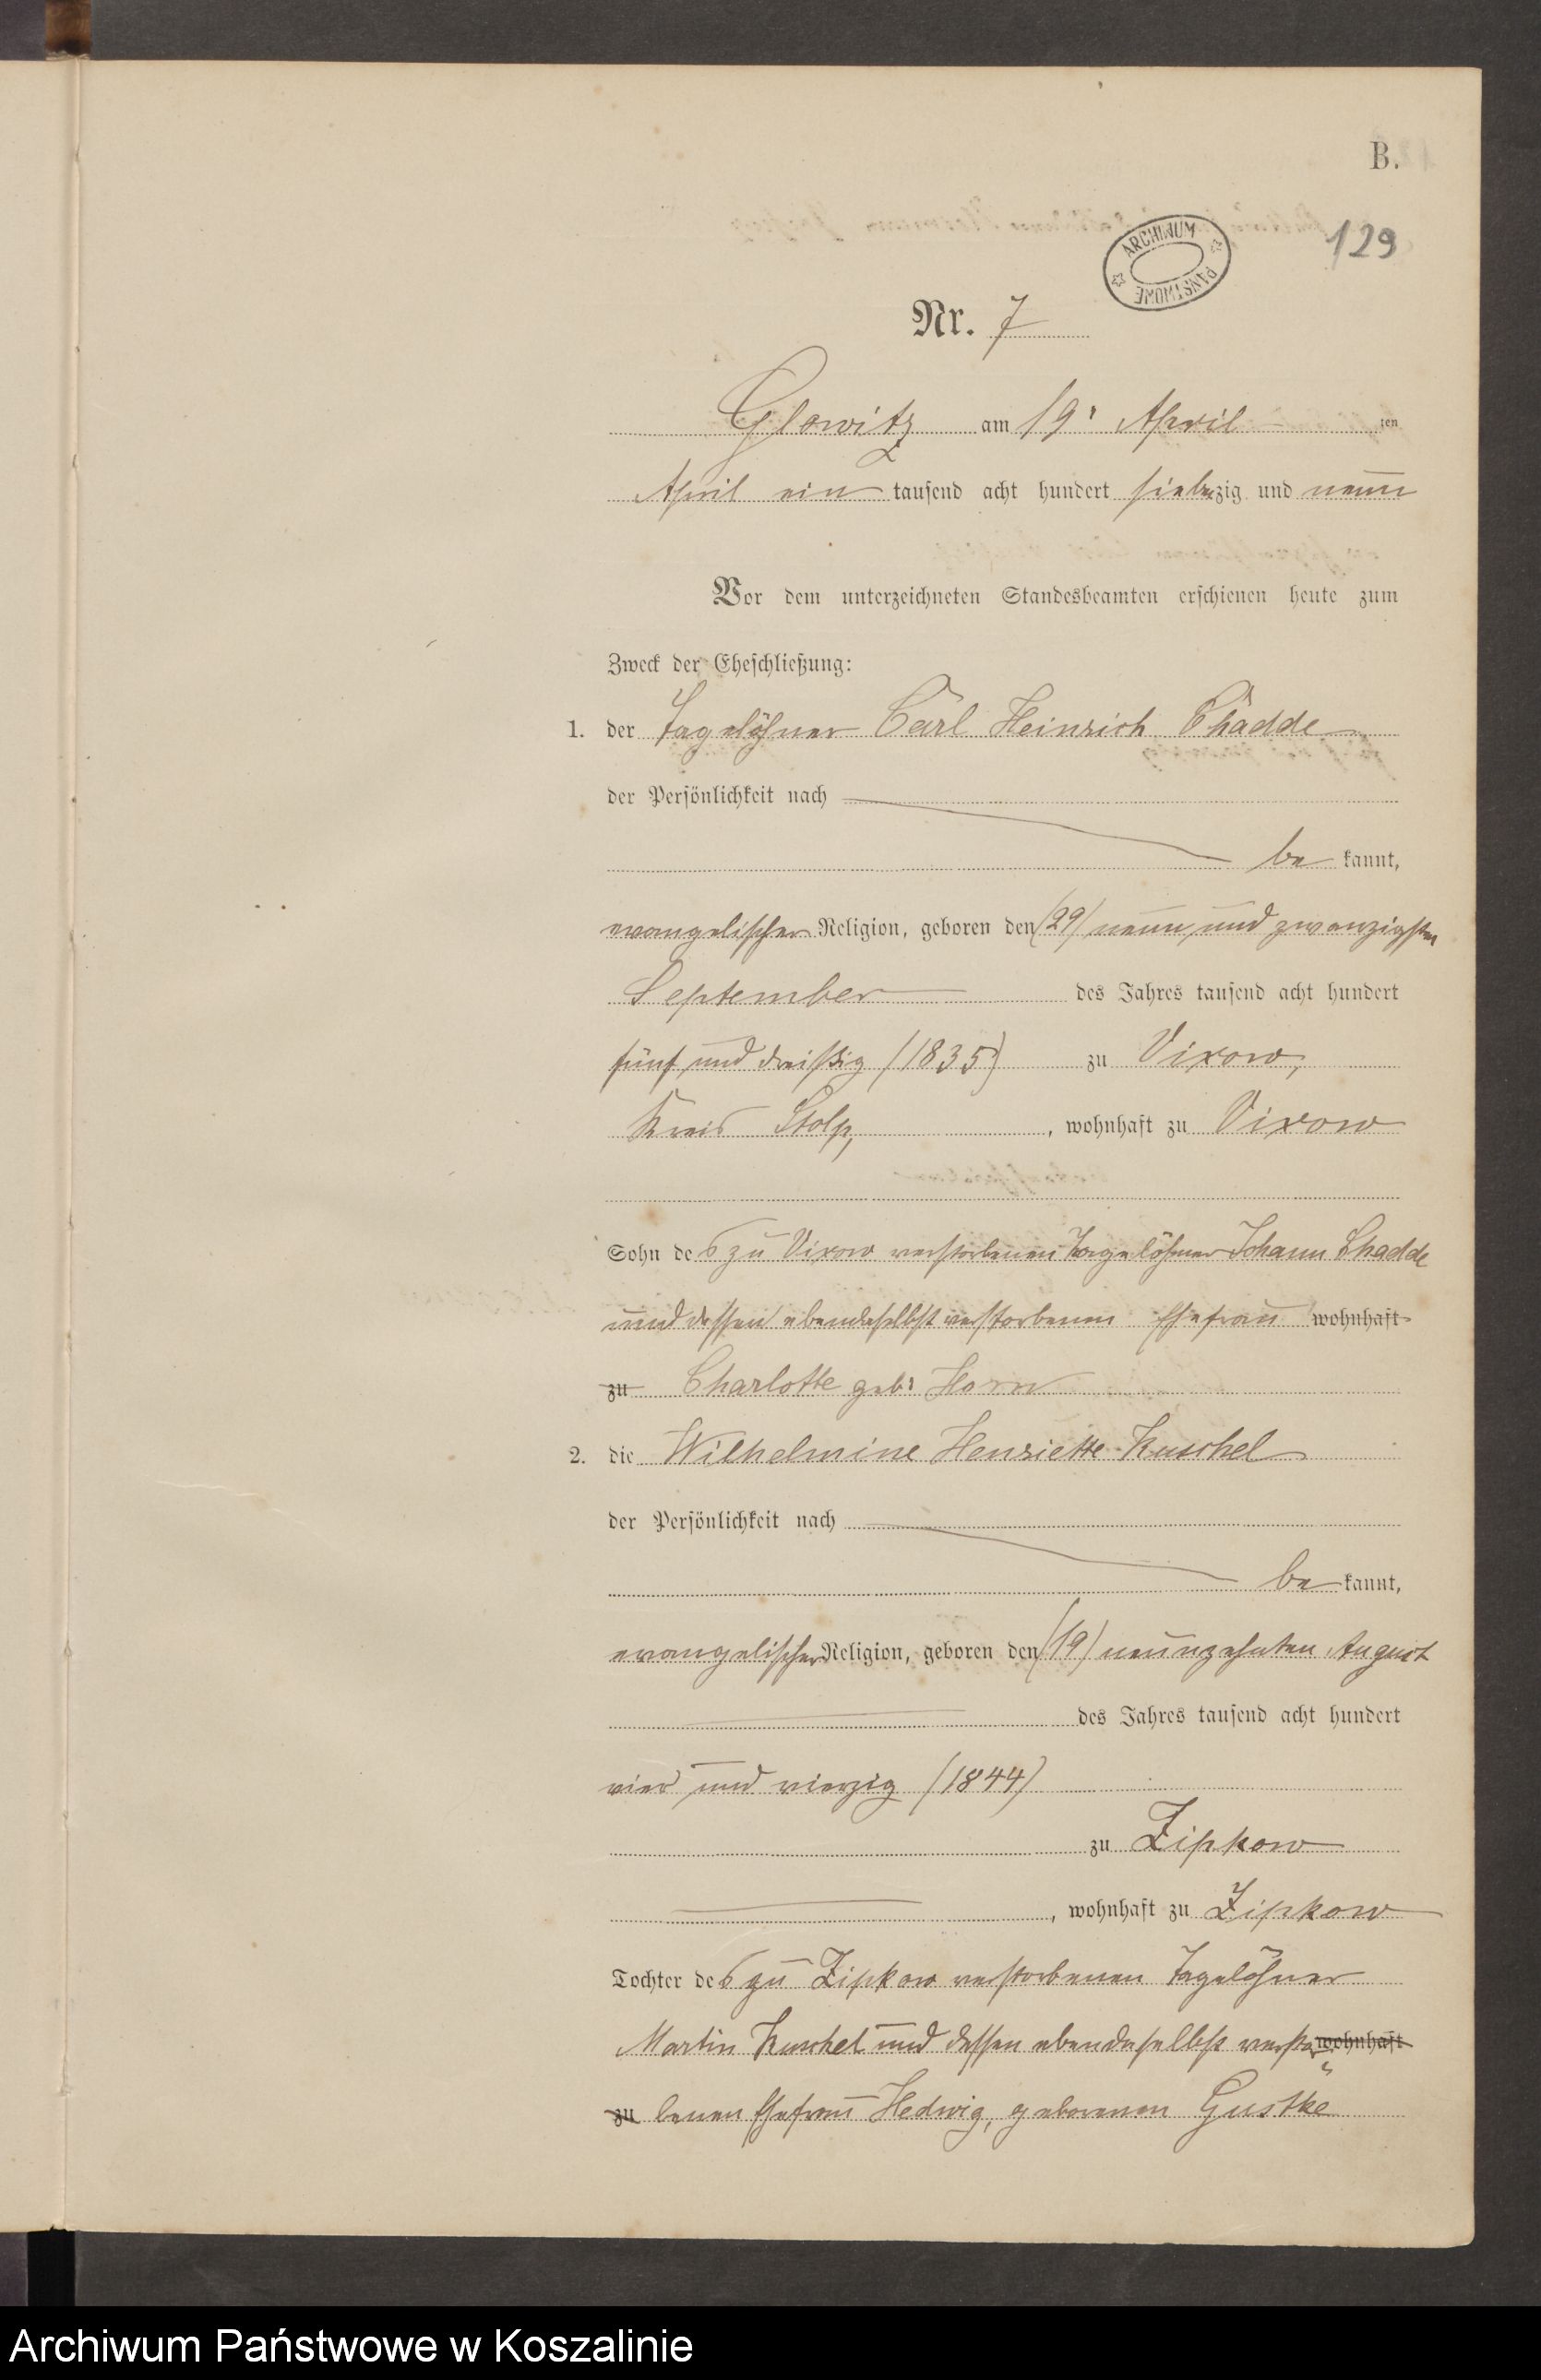 B.
129
ARCHIWUM PAŃSTWOWE
Nr. 7
Glowitz am 19. April ten
April ein tausend acht hundert siebenzig und neun
Vor dem unterzeichneten Standesbeamten erschienen heute zum
Zweck der Eheschließung:
1. der Tagelöhner Carl Heinrich Chadde
der Persönlichkeit nach
be kannt,
evangelischer Religion, geboren den (29) neun und zwanzigsten
September des Jahres tausend acht hundert
fünf und dreißig (1835) zu Vixow,
Kreis Stolp, , wohnhaft zu Vixow
Sohn des zu Vixow verstorbenen Tagelöhner Johann Chadde
und dessen ebendaselbst verstorbenen Ehefrau wohnhaft
zu Charlotte geb. Horn
2. die Wilhelmine Henriette Kuschel
der Persönlichkeit nach
be kannt,
evangelischer Religion, geboren den (19) neunzehnten August
des Jahres tausend acht hundert
vier und vierzig (1844)
zu Zipkow
, wohnhaft zu Zipkow
Tochter des zu Zipkow verstorbenen Tagelöhner
Martin Kuschel und dessen ebendaselbst verstor wohnhaft
zu benen Ehefrau Hedwig, geborenen Gustke
Archiwum Państwowe w Koszalinie